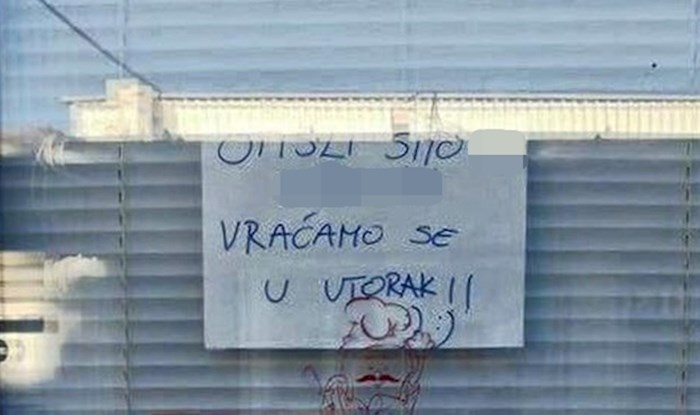 OTIŠLI SMO
VRAĆAMO SE
U UTORAK!!
:)